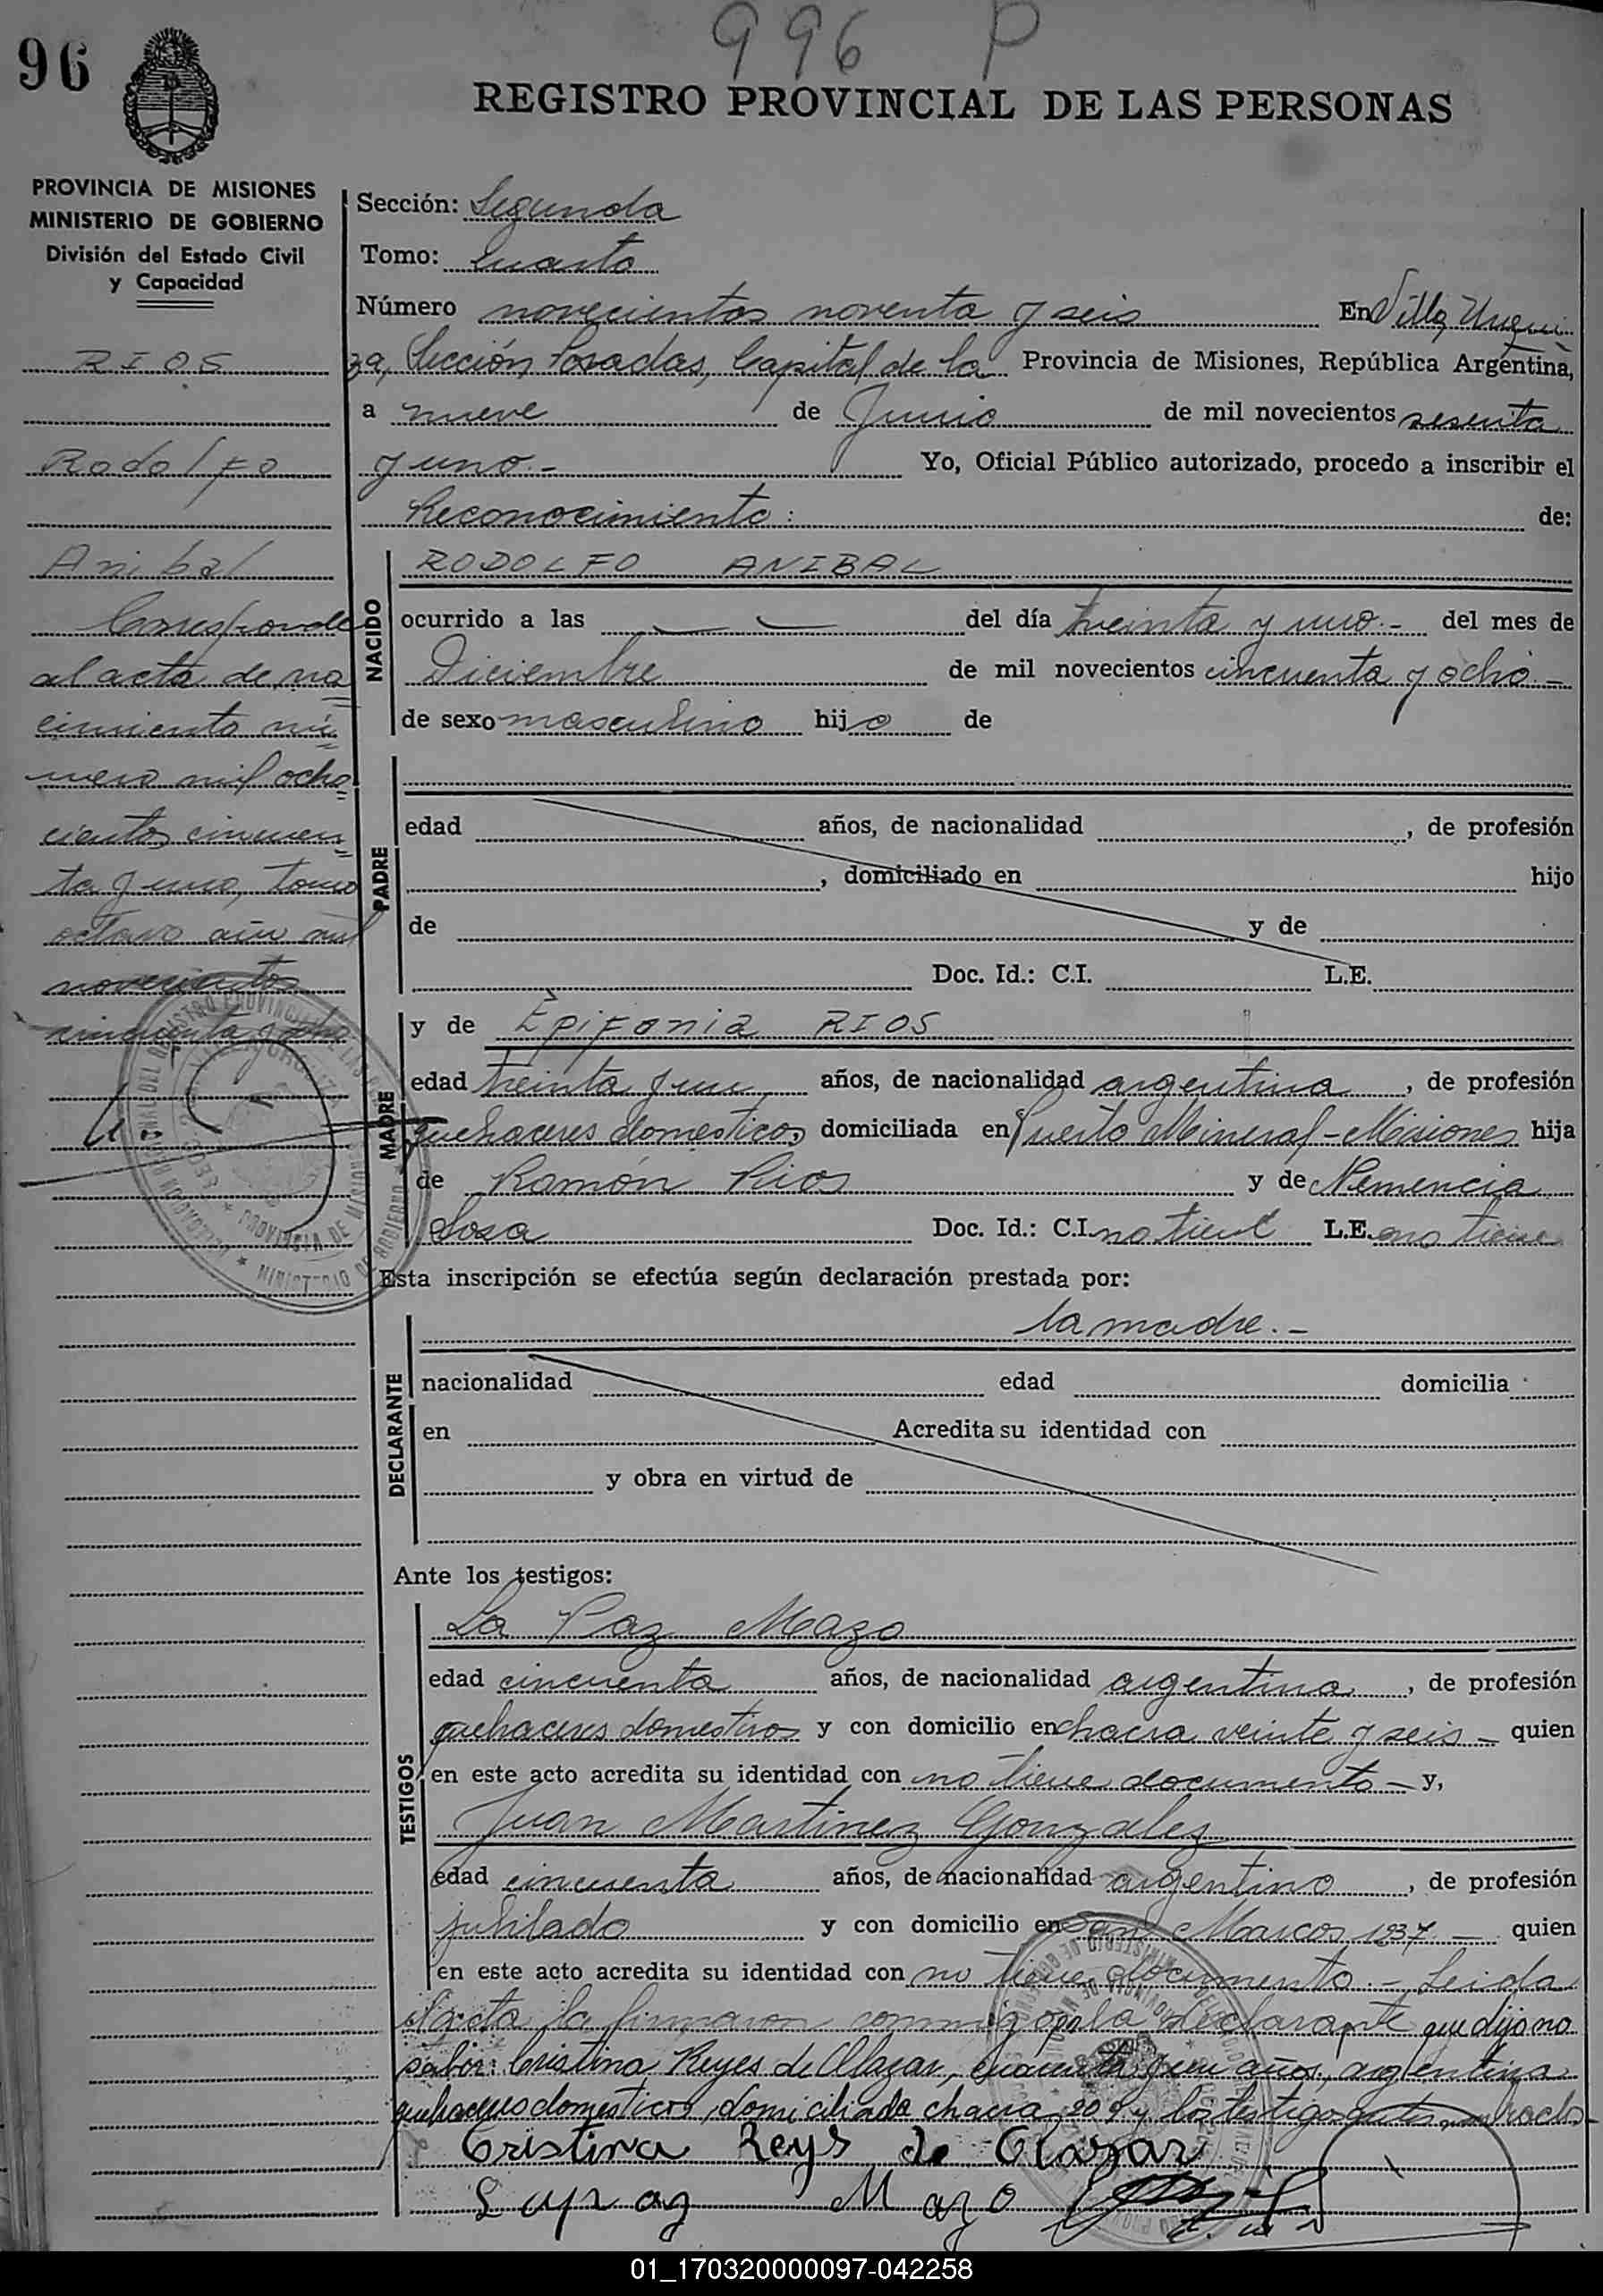 996 P
96
REGISTRO PROVINCIAL DE LAS PERSONAS
PROVINCIA DE MISIONES
MINISTERIO DE GOBIERNO
División del Estado Civil
y Capacidad
RIOS
Rodolfo
Anibal
Corresponde
al acta de na
cimiento nú
mero mil ocho
cientos cincuen
ta y uno, tomo
octavo año mil
novecientos
cincuenta y ocho
Sección: Segunda
Tomo: Cuarto
Número novecientos noventa y seis En Villa Urqui
za, Sección Posadas, Capital de la Provincia de Misiones, República Argentina,
a nueve de Junio de mil novecientos sesenta
y uno.- Yo, Oficial Público autorizado, procedo a inscribir el
Reconocimiento: de:
NACIDO
RODOLFO ANIBAL
ocurrido a las — — del día treinta y uno.- del mes de
Diciembre de mil novecientos cincuenta y ocho.-
de sexo masculino hijo de
PADRE
edad años, de nacionalidad , de profesión
, domiciliado en hijo
de y de
Doc. Id.: C.I. L.E.
MADRE
y de Epifania RIOS
edad treinta y un años, de nacionalidad argentina, de profesión
quehaceres domesticos domiciliada en Puerto Mineral - Misiones hija
de Ramón Rios y de Nemencia
Sosa Doc. Id.: C.I. no tiene L.E. no tiene
Esta inscripción se efectúa según declaración prestada por:
DECLARANTE
la madre.-
nacionalidad edad domicilia
en Acredita su identidad con
y obra en virtud de
Ante los testigos:
TESTIGOS
La Paz Mazo
edad cincuenta años, de nacionalidad argentina, de profesión
quehaceres domesticos y con domicilio en chacra veinte y seis - quien
en este acto acredita su identidad con no tiene documento - y,
Juan Martinez Gonzalez
edad cincuenta años, de nacionalidad argentino, de profesión
jubilado y con domicilio en San Marcos 1237.- quien
en este acto acredita su identidad con no tiene documento.- Leida
el acta la firmaron conmigo por la declarante que dijo no
saber: Cristina Reyes de Olazar, cuarenta y un años, argentina
quehaceres domesticos, domiciliada chacra 209 y los testigos
Cristina Reys de Olazar
Lapaz Mazo
01_170320000097-042258